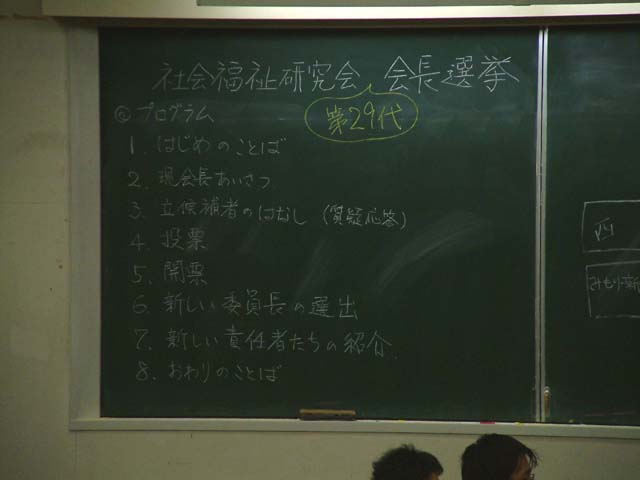 社会福祉研究会 会長選挙
第29代
◎ プログラム
1. はじめのことば
2. 現会長あいさつ
3. 立候補者のはなし (質疑応答)
4. 投票
5. 開票
6. 新しい委員長の選出
7. 新しい責任者たちの紹介
8. おわりのことば
西